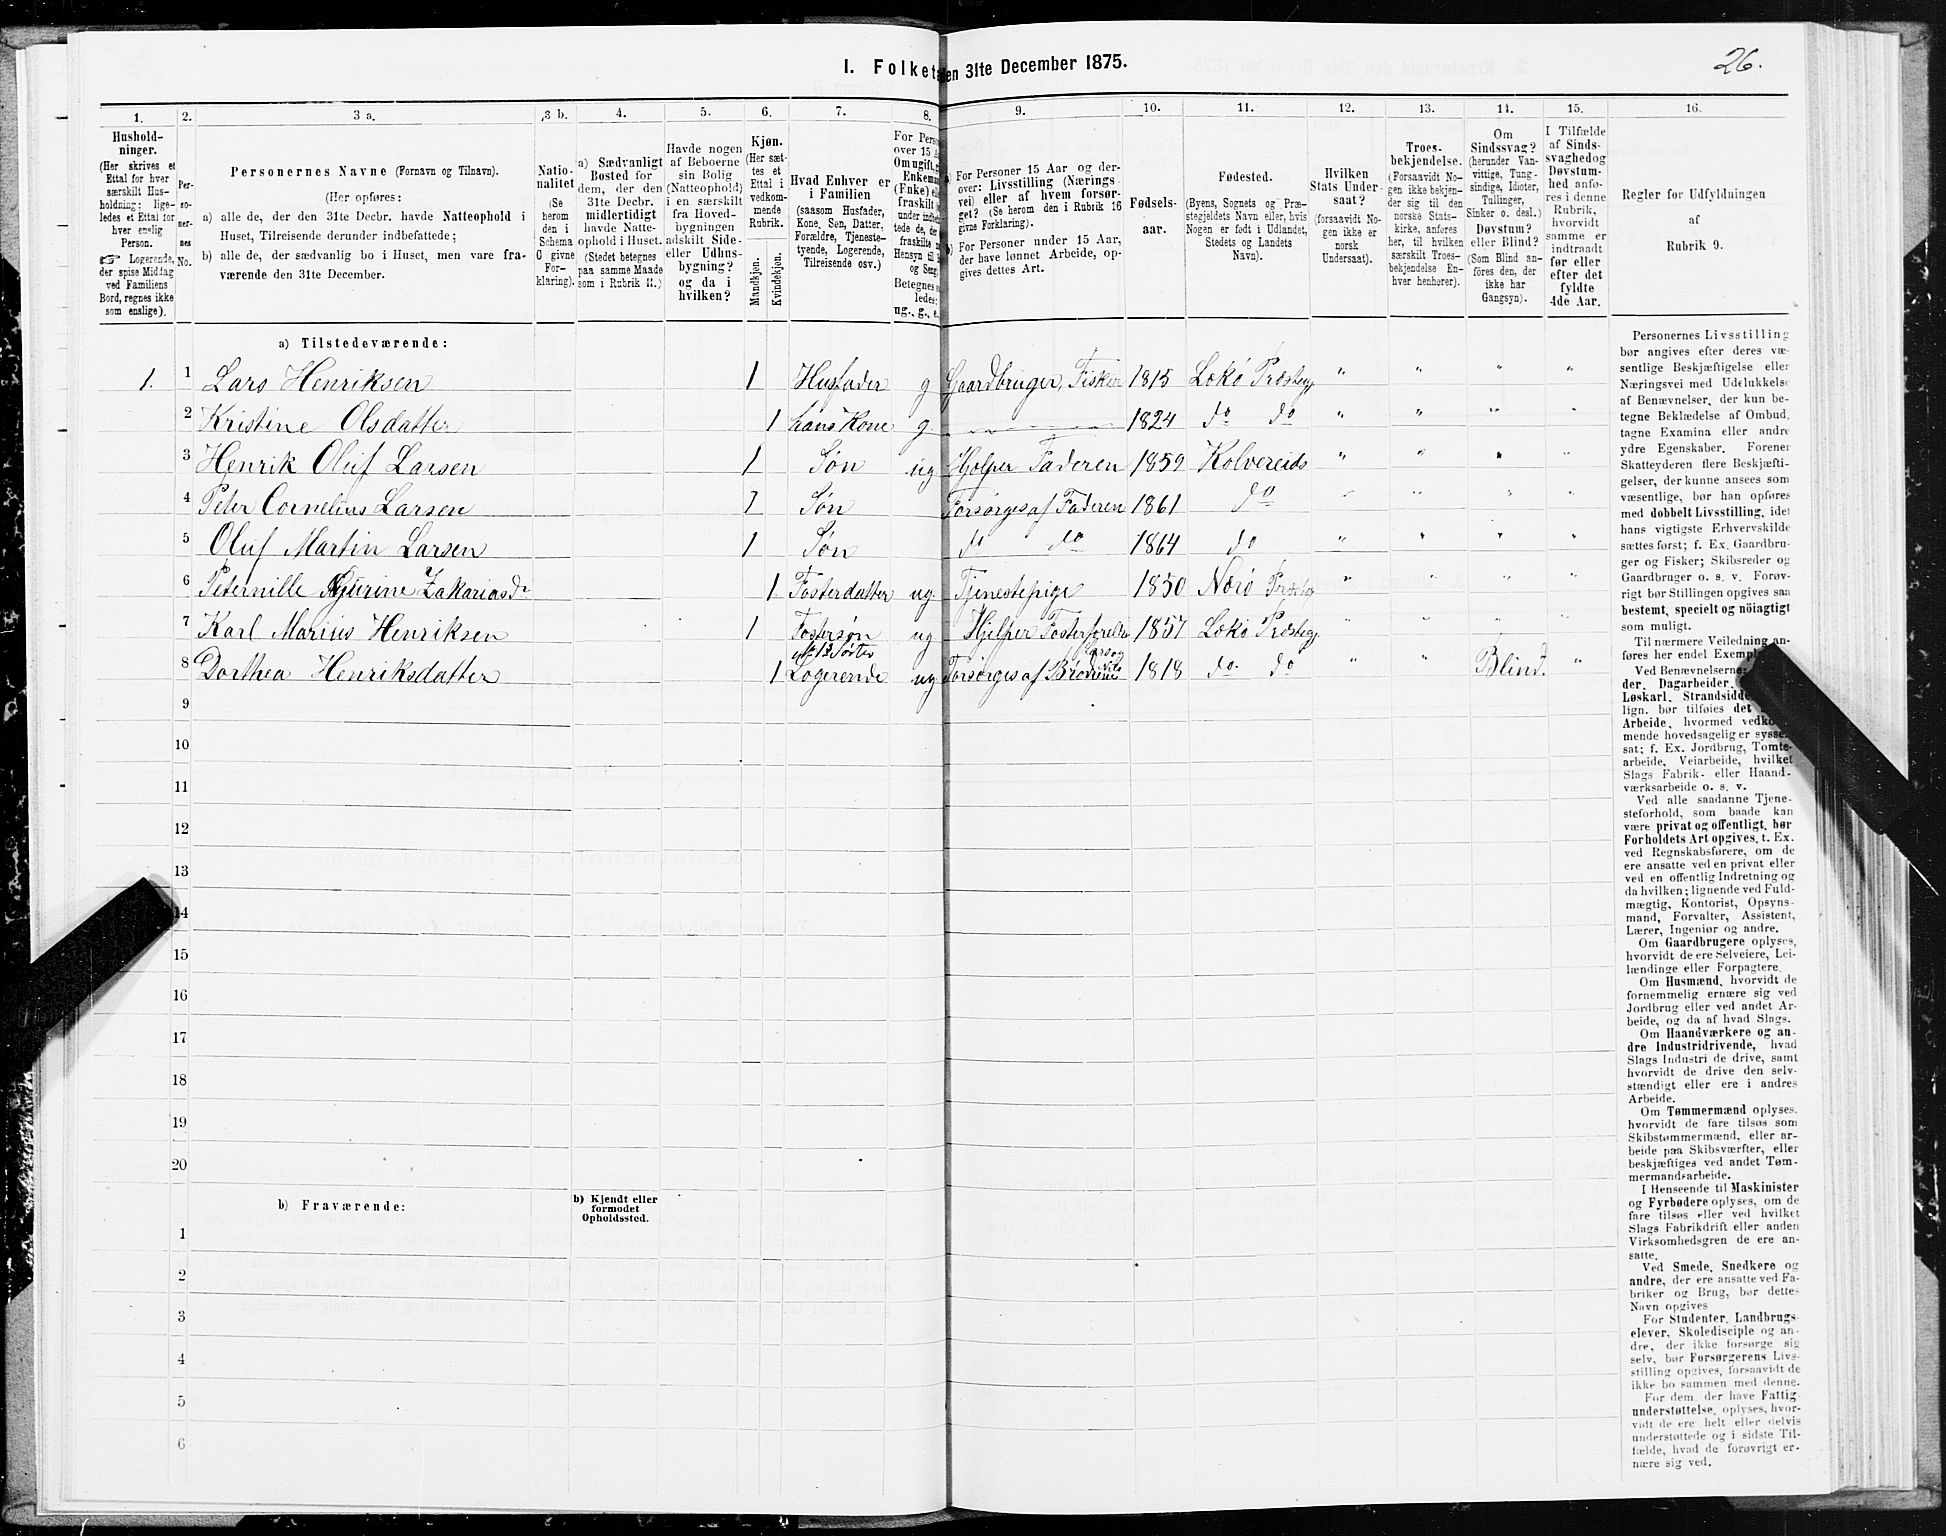 26.
I. Folketæ
en 31te December 1875.
1. 2. 3 a. 3 b. 4. 5. 6. 7. 8. 9. 10. 11. 12. 13. 14. 15. 16.
Hushold-
ninger.
(Her skrives et
Ettal for hver
særskilt Hus-
holdning; lige-
ledes et Ettal for
hver enslig
Person.
☞ Logerende,
der spise Middag
ved Familiens
Bord, regnes ikke
som enslige).
Per-
so-
ner-
nes
No.
Personernes Navne (Fornavn og Tilnavn).
(Her opføres:
a) alle de, der den 31te Decbr. havde Natteophold i
Huset, Tilreisende derunder indbefattede;
b) alle de, der sædvanlig bo i Huset, men vare fra-
værende den 31te December.
Natio-
nalitet
(Se
herom
den i
Schema
C givne
For-
klaring).
a) Sædvanligt
Bosted for
dem, der den
31te Decbr.
midlertidigt
havde Natte-
ophold i Huset.
(Stedet betegnes
paa samme Maade
som i Rubrik 11.)
Havde nogen
af Beboerne
sin Bolig
(Natteophold)
i en særskilt
fra Hoved-
bygningen
adskilt Side-
eller Udhus-
bygning?
og da i
hvilken?
Kjøn.
(Her sæt-
tes et
Ettal i
vedkom-
mende
Rubrik.
Mandkjøn.
Kvindekjøn.
Hvad Enhver er
i Familien
(saasom Husfader,
Kone, Søn, Datter,
Forældre, Tjeneste-
tyende, Logerende,
Tilreisende osv.)
For Pers
over 15 A
Om ugift, g
Enkema
(Enke) e
fraskilt
Betegnes s
ledes:
ug., g., e.
a) For Personer 15 Aar og der-
over: Livsstilling (Nærings-
vei) eller af hvem forsør-
get? (Se herom den i Rubrik 16
givne Forklaring).
b) For Personer under 15 Aar,
der have lønnet Arbeide, op-
gives dettes Art.
Fødsels-
aar.
Fødested.
(Byens, Sognets og Præ-
stegjeldets Navn eller, hvis
Nogen er født i Udlandet,
Stedets og Landets
Navn).
Hvilken
Stats Under-
saat?
(forsaavidt No-
gen ikke er
norsk
Undersaat).
Troes-
bekjendelse.
(Forsaavidt No-
gen ikke bekjen-
der sig til den
norske Stats-
kirke, anføres
her, til hvilken
særskilt Troes-
bekjendelse En-
hver henhører).
Om
Sindssvag?
(herunder Van-
vittige, Tung-
sindige, Idioter,
Tullinger,
Sinker o. desl.)
Døvstum?
eller Blind?
(Som Blind an-
føres den, der
ikke har
Gangsyn).
I Tilfælde
af Sinds-
svaghed og
Døvstum-
hed anfø-
res i denne
Rubrik,
hvorvidt
samme er
indtraadt
før eller
efter det
fyldte
4de Aar.
Regler for Udfyldningen
af
Rubrik 9.
a) Tilstedeværende:
1. 1 Lars Henriksen 1 Husfader g Gaardbruger, Fisker 1815 Lekø Præstegj " " " "
2 Kristine Olsdatter 1 hans Kone g 1824 do do " " " "
3 Henrik Oluf Larsen 1 Søn ug Hjelper Faderen 1859 Kolvereids " " " "
4 Peter Cornelius Larsen 1 Søn Forsørges af Faderen 1861 do " " " "
5 Oluf Martin Larsen 1 Søn do do 1864 do " " " "
6 Peternille Zakariasdr 1 Fosterdatter ug Tjenestepige 1850 Nærø " " " "
7 Karl Marius Henriksen 1 Fostersøn ug Hjelper 1857 Lekø Præstegj " " " "
8 Dorthea Henriksdatter 1 Logerende ug Forsørges af Brødrene 1818 do do " " Blind. "
9
10
11
12
13
14
15
16
17
18
19
20
b) Fraværende:
b) Kjendt eller
formodet
Opholdssted.
1
2
3
4
5
6
Personernes Livsstilling
bør angives efter deres væ-
sentlige Beskjæftigelse eller
Næringsvei med Udelukkelse
af Benævnelser, der kun be-
tegne Beklædelse af Ombud,
tagne Examina eller andre
ydre Egenskaber. Forener
Skatteyderen flere Beskjæfti-
gelser, der kunne ansees som
væsentlige, bør han opføres
med dobbelt Livsstilling, idet
hans vigtigste Erhvervskilde
sættes først; f. Ex. Gaardbru-
ger og Fisker; Skibsreder og
Gaardbruger o. s. v. Forøv-
rigt bør Stillingen opgives saa
bestemt, specielt og nöiagtigt
som muligt.
Til nærmere Veiledning an-
føres her endel Exempl
Ved Benævnelserne:
der, Dagarbeider,
Løskarl, Strandsidde
lign. bør tilføies det
Arbeide, hvormed vedko
mende hovedsagelig er syssel
sat; f. Ex. Jordbrug, Tomte-
arbeide, Veiarbeide, hvilket
Slags Fabrik- eller Haand-
værksarbeide o. s. v.
Ved alle saadanne Tjene-
steforhold, som baade kan
være privat og offentligt, bør
Forholdets Art opgives, t. Ex.
ved Regnskabsførere, om de
ere ansatte ved en privat eller
ved en offentlig Indretning og
da hvilken; lignende ved Fuld-
mægtig, Kontorist, Opsyns-
mand, Forvalter, Assistent,
Lærer, Ingeniør og andre.
Om Gaardbrugere oplyses,
hvorvidt de ere Selveiere, Lei-
lændinge eller Forpagtere.
Om Husmænd, hvorvidt de
fornemmelig ernære sig ved
Jordbrug eller ved andet Ar-
beide, og da af hvad Slags.
Om Haandværkere og an-
dre Industridrivende, hvad
Slags Industri de drive, samt
hvorvidt de drive den selv-
stændigt eller ere i andres
Arbeide.
Om Tømmermænd oplyses,
hvorvidt de fare tilsøs som
Skibstømmermænd, eller ar-
beide paa Skibsværfter, eller
beskjæftiges ved andet Tøm-
mermandsarbeide.
I Henseende til Maskinister
og Fyrbødere oplyses, om de
fare tilsøs eller ved hvilket
Slags Fabrikdrift eller anden
Virksomhedsgren de ere an-
satte.
Ved Smede, Snedkere og
andre, der ere ansatte ved Fa-
briker og Brug, bør dettes
Navn opgives
For Studenter, Landbrugs-
elever, Skoledisciple og an-
dre, der ikke forsørge sig
selv, bør Forsørgerens Livs-
stilling opgives, forsaavidt de
ikke bo sammen med denne.
For dem, der have Fattig
understøttelse, oplyses, hvor-
vidt de ere helt eller delvis
understøttede og i sidste Til-
fælde, hvad de forøvrigt er-
nære sig ved.